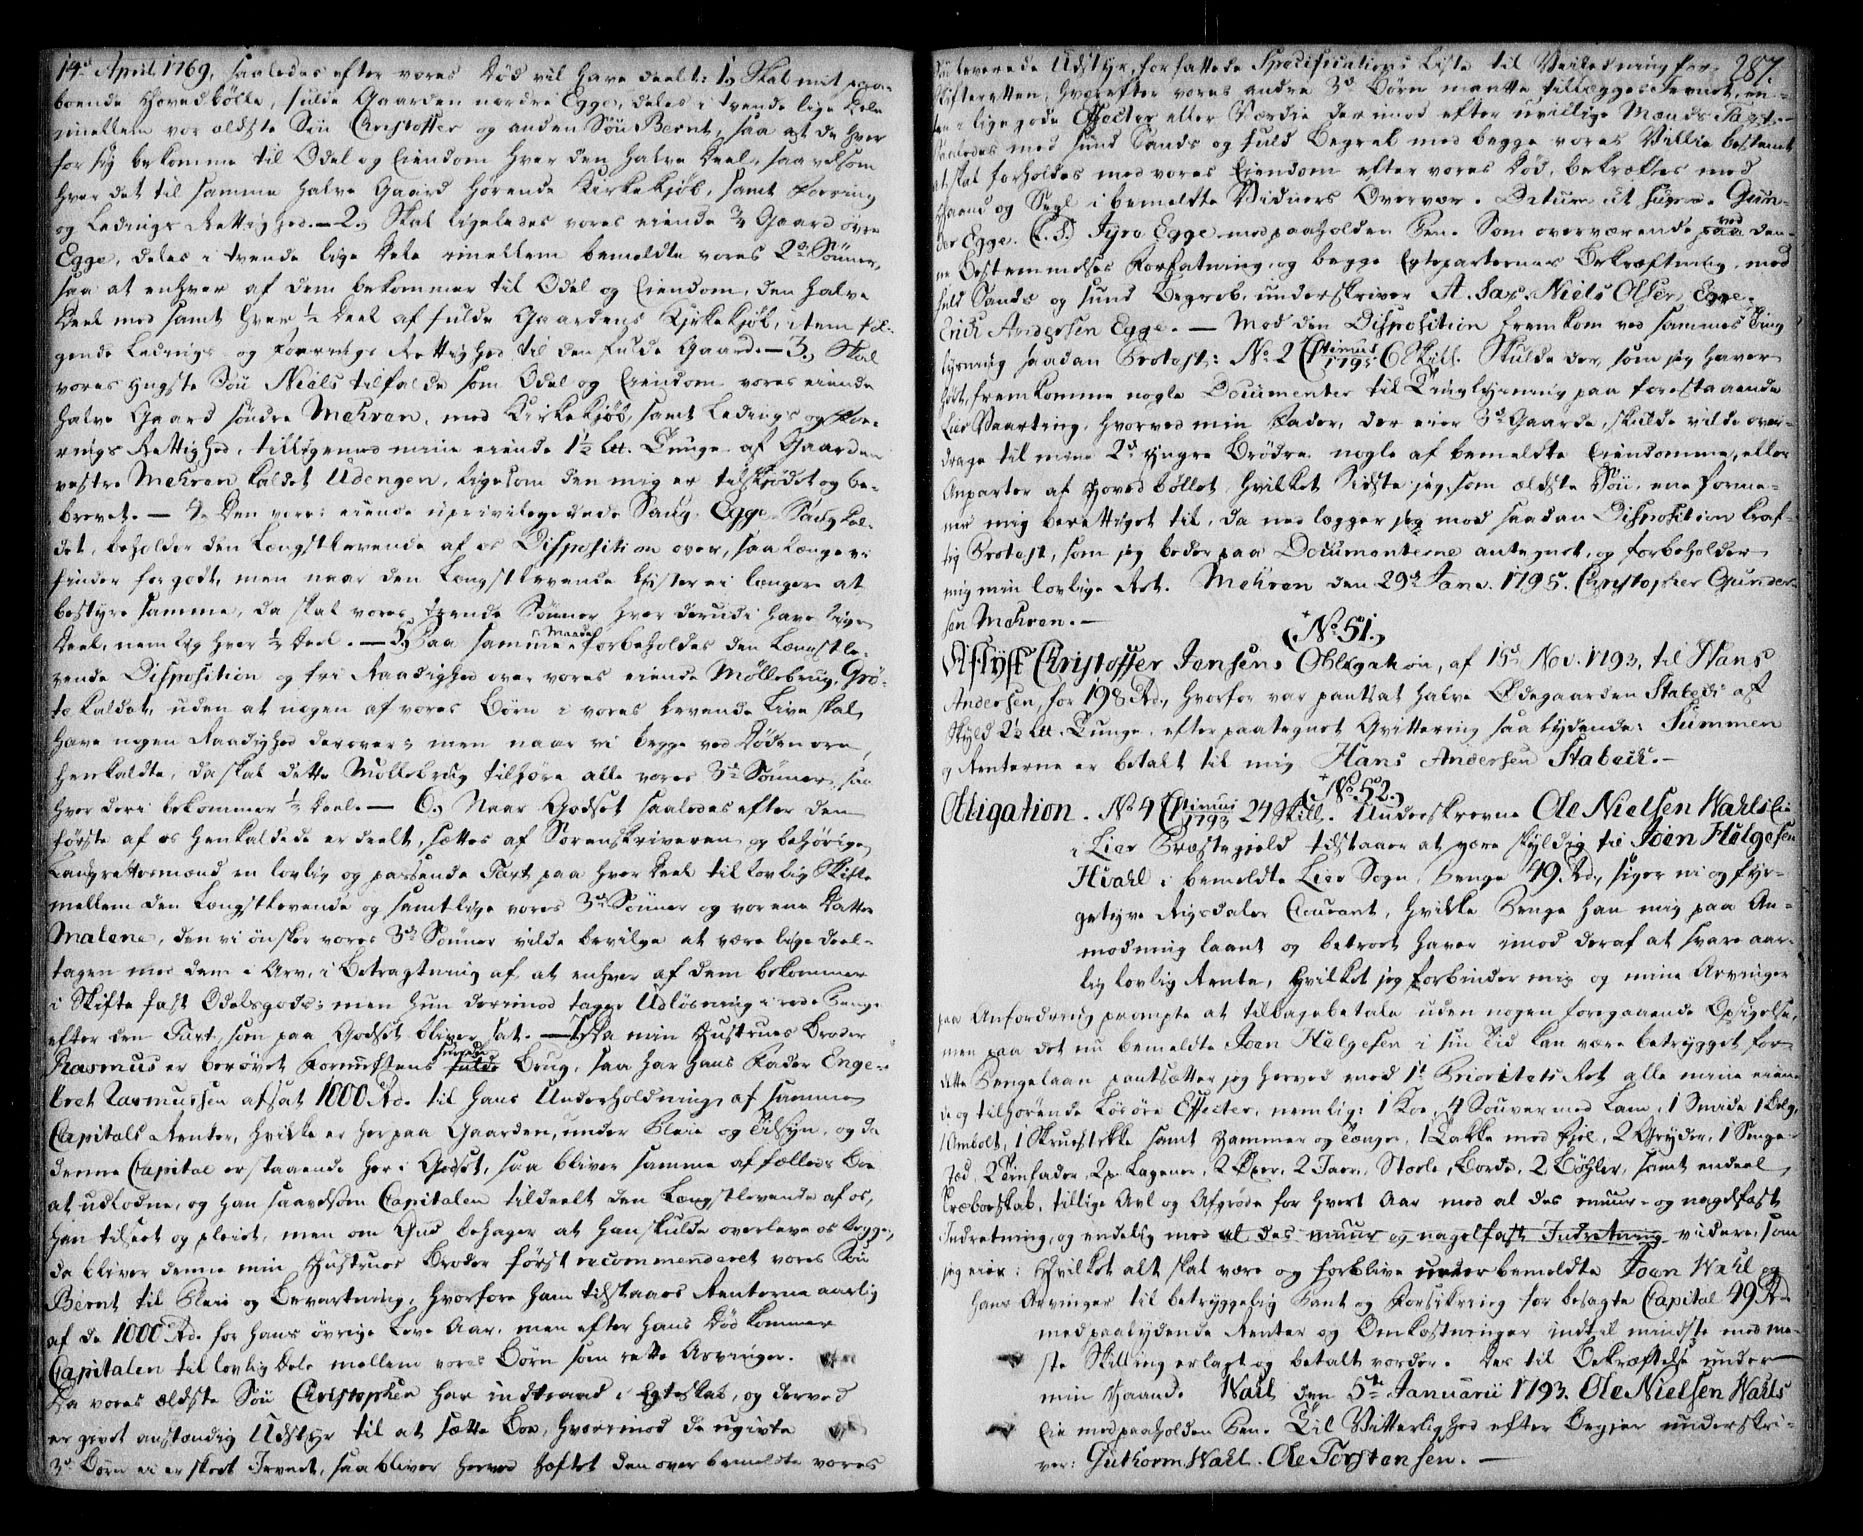 14d April 1769, saaledes efter vores Død vil have deelt: 1) Skal mit paa-
boende Hovedbølle, fulde Gaarden nordre Egge, deles i tvende lige Dele
imellem vor ældste Søn Christoffer og anden Søn Bernt, saa at de hver
for sig bekomme til Odel og Eiendom hver den halve Deel, saavelsom
hver det til samme halve Gaard hørende Kirkekjøb, samt Foering
og Lednings Rettighed. — 2) Skal ligeledes vores eiende 3/4 Gaard øvre
Egge, deles i tvende lige Dele imellem bemeldte vores 2de Sønner,
saa at enhver af dem bekommer til Odel og Eiendom, den halve
Deel med samt hver 1/2 Deel af fulde Gaardens Kirkekjøb, item føl-
gende Lednings og Foerings Rettighed til den fulde Gaard. — 3) Skal
vores yngste Søn Niels tilfalde som Odel og Eiendom vores eiende
halve Gaard søndre Mehren, med Kirkekjøb, samt Lednings og Foe-
rings Rettighed, tilligemed mine eiende 1 1/2 Lt. Tunge af Gaarden
vestre Mehren kaldet Udengen, ligesom den mig er tilskjødet og be-
brevet. — 4) Den vores eiende uprivilegerede Saug, Egge-Saug kal-
det, beholder den Længstlevende af os Disposition over, saa længe vi
finder for godt, men naar den Længstlevende lyster ei længere at
bestyre samme, da skal vores tvende Sønner hver derudi have lige
Deel, nemlig hver 1/2 Deel. — 5) Paa samme Maade forbeholdes den Længstle-
vende Disposition og fri Raadighed over vores eiende Møllebrug, Grø-
te kaldet, uden at nogen af vores Børn i vores levende Live skal
have nogen Raadighed derover; men naar vi begge ved Døden ere
henkaldte, da skal dette Møllebrug tilhøre alle vores 3de Sønner, saa
hver deri bekommer 1/3 Deel. — 6) Naar Godset saaledes efter den
første af os henkaldede er deelt, sættes af Sorenskriveren og behørige
Laugrettesmænd en lovlig og passende Taxt paa hver Deel til lovlig Skifte
mellem den Længstlevende og samtlige vores 3de Sønner og vor ene Datter
Malene, den vi ønsker vores 3de Sønner vilde bevilge at være lige deel-
tagen med dem i Arv, i Betragtning af, at enhver af dem bekommer
i Skifte fast Odelsgods; men hun derimod tager Udløsning i rede Penge
efter den Taxt, som paa Godset bliver sat. — 7) Da min Hustrues Broder
Rasmus er berøvet Fornuftens sunde fulde Brug, saa har hans Fader Enge-
bret Rasmussen afsat 1000 Rd. til hans Underholdning af samme
Capitals Renter, hvilke er her paa Gaarden, under Pleie og Tilsyn, og da
denne Capital er staaende her i Godset, saa bliver samme af fælleds Boe
at udlodne, og han saavelsom Capitalen tildeelt den Længstlevende af os,
han tilseet og pleiet, men om Gud behager at han skulde overleve os begge,
da bliver denne min Hustrues Broder først recommenderet vores Søn
Bernt til Pleie og Bevartning, hvorfore ham tilstaaes Renterne aarlig
af de 1000 Rd. for hans øvrige Leve Aar, men efter hans Død kommer
Capitalen til lovlig Dele mellem vores Børn som rette Arvinger.
Da vores ældste Søn Christopher har indtraad i Egteskab, og derved
er givet anstændig Udstyr til at sætte Boe, hvorimod de ugivte
3de Børn ei er skeet Jevnet, saa bliver herved hæftet den over bemeldte vores
287.
Søn leverede Udstyr, forfattede Specifications Liste til Veiledning for
Skifteretten, hvorefter vores andre 3de Børn maatte tillægges Jevnet, en-
ten i lige gode Effecter eller Værdie derimod efter uvillige Mænds Taxt.—
Saaledes med sund Sands og fuld Begreb med begge vores Villie bestemt
at skal forholdes med vores Eiendom efter vores Død, bekræftes med
Haand og Segl i bemeldte Vidners Overvær. Datum ut supra. Gun-
der Egge. (L.S.) Jyre Egge med paaholden Pen. Som overværende paa ved den-
ne Bestemmelses Forfatning, og begge Egteparternes Bekræftning, med
fuld Sands og sund Begreb, underskriver A. Sax. Niels Olsen Egge.
Erich Andersen Egge. — Mod den Disposition fremkom ved sammes Ting
lysning saadan Protest: No. 2 Stimul 1795 6 Skill. Skulde der, som jeg haver
hørt, fremkomme nogle Documenter til Tinglysning paa forestaaende
Lier Vaarting, hvorved min Fader, der eier 3de Gaarde, skulde vilde over-
drage til mine 2de yngre Brødre nogle af bemeldte Eiendomme, eller
Anparter af Hovedbøllet, hvilket Sidste jeg, som ældste Søn, ene forme-
ner mig berettiget til, da nedlægger jeg mod saadan Disposition kraf-
tig Protest, som jeg beder paa Documenterne antegnet, og forbeholder
mig min lovlige Ret. Mehren den 29de Janv. 1795. Christopher Gunder-
sen Mehren. —
(No. 51.)
Aflyst Christoffer Jensens Obligation, af 15de Nov. 1793, til Hans
Andersen, for 198 Rd., hvorfor var pantsat halve Ødegaarden Stabech af
Skyld 2 1/2 Lt. Tunge, efter paategnet Qvittering saa lydende: Summen
og Renterne er betalt til mig Hans Andersen Stabech. —
(No. 52.)
Obligation. No. 4 Stimul 1793 24 Skill. Underskrevne Ole Nielsen Wahls Eie
i Lier Præstegield tilstaaer at være skyldig til Joen Helgesen
Hvahl i bemeldte Lier Sogn, Penge 49 Rd., siger ni og fyr-
getyve Rigsdaler Courant, hvilke Penge han mig paa An-
modning laant og betroet haver imod deraf at svare aar-
lig lovlig Rente, hvilket jeg forbinder mig og mine Arvinger
paa Anfordring prompte at tilbagebetale uden nogen foregaaende Opsigelse,
men paa det nu bemeldte Joen Helgesen i sin Tid kan være betrygget for
dette Pengelaan pantsætter jeg herved med 1te Prioritets Ret alle mine eien-
de og tilhørende Løsøre Effecter, nemlig: 1 Koe, 4 Souver med Lam, 1 Smide 1 Belg,
1 Ambolt, 1 Skruestikke samt Hammer og Tænger, 1 Bakke med Fiel, 2 Gryder, 1 Senge-
sted, 2 Pernsader, 2 Lagener, 2 Øxer, 2 Jaer, Stoele, Borde, 2 Bøhler, samt endeel
Træboeskab, tillige Avl og Afgrøde for hvert Aar med al des muur- og nagelfast
Indretning, og endelig med al des muur og nagelfast Indretning videre, som
jeg eier: Hvilket alt skal være og forblive under bemeldte Joen Wahl og
hans Arvinger til betryggelig Pant og Forsikring for besagte Capital 49 Rd.
med paalydende Renter og Omkostninger indtil mindste med me-
ste Skilling erlagt og betalt vorder. Des til Bekræftelse under
min Haand. Wahl den 5te Januarii 1793. Ole Nielsen Wahls
Eie med paaholden Pen. Til Vitterlighed efter Begjer underskri-
ver: Guthorm Wahl. Ole Torstensen. —